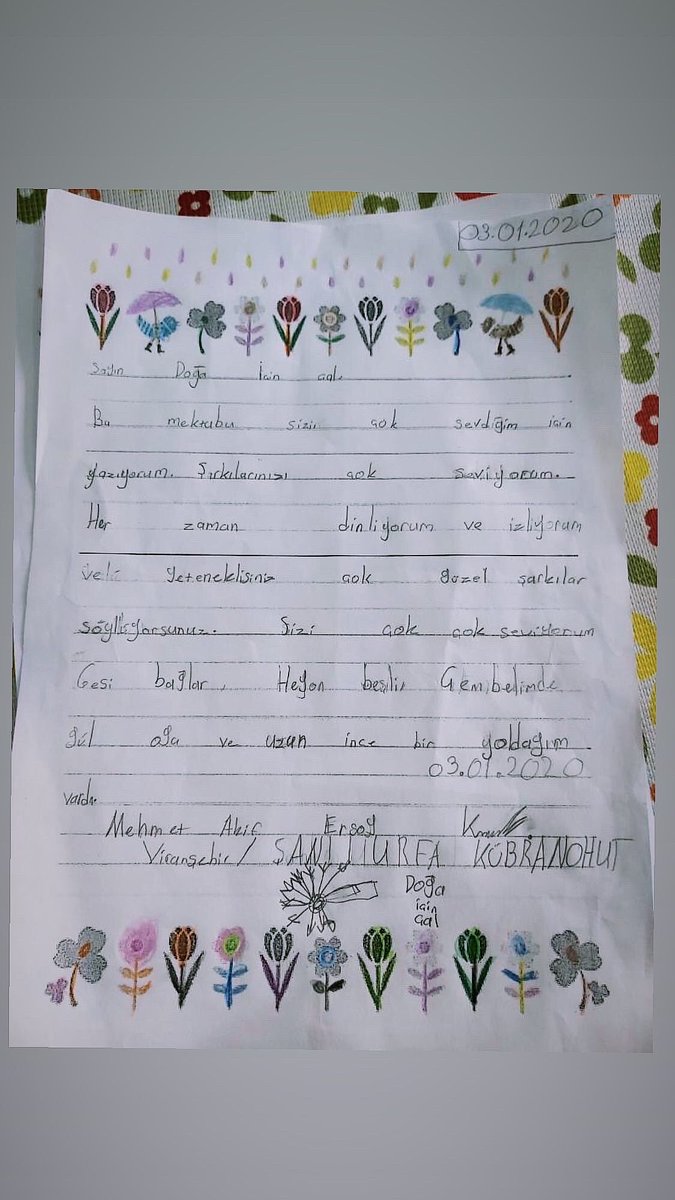 03.01.2020
Sayın Doğa İçin Çal.
Bu mektubu sizi çok sevdiğim için
yazıyorum. Şırkılarınızı çok seviyorum.
Her zaman dinliyorum ve izliyorum
yeteneklisiniz çok güzel şarkılar
söylüyorsunuz. Sizi çok çok seviyorum
Gesi bağlar, Heyon beslilı Gemibelimde
gül ağa ve uzun ince bir yoldayım
03.01.2020
vardı.
Mehmet Akif Ersoy
Viranşehir/ ŞANLIURFA KÜBRA NOHUT
Doğa
için
Çal